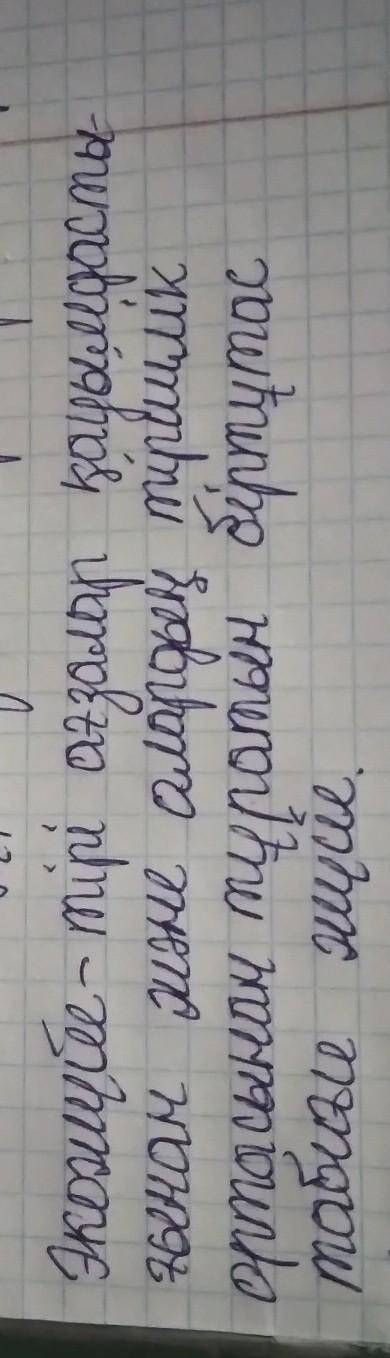 Экожүйе - тірі ағзалар қауымдасты-
ғынан және алардың тіршілік
ортасынан тұратын біртұтас
табиғи жүйе.